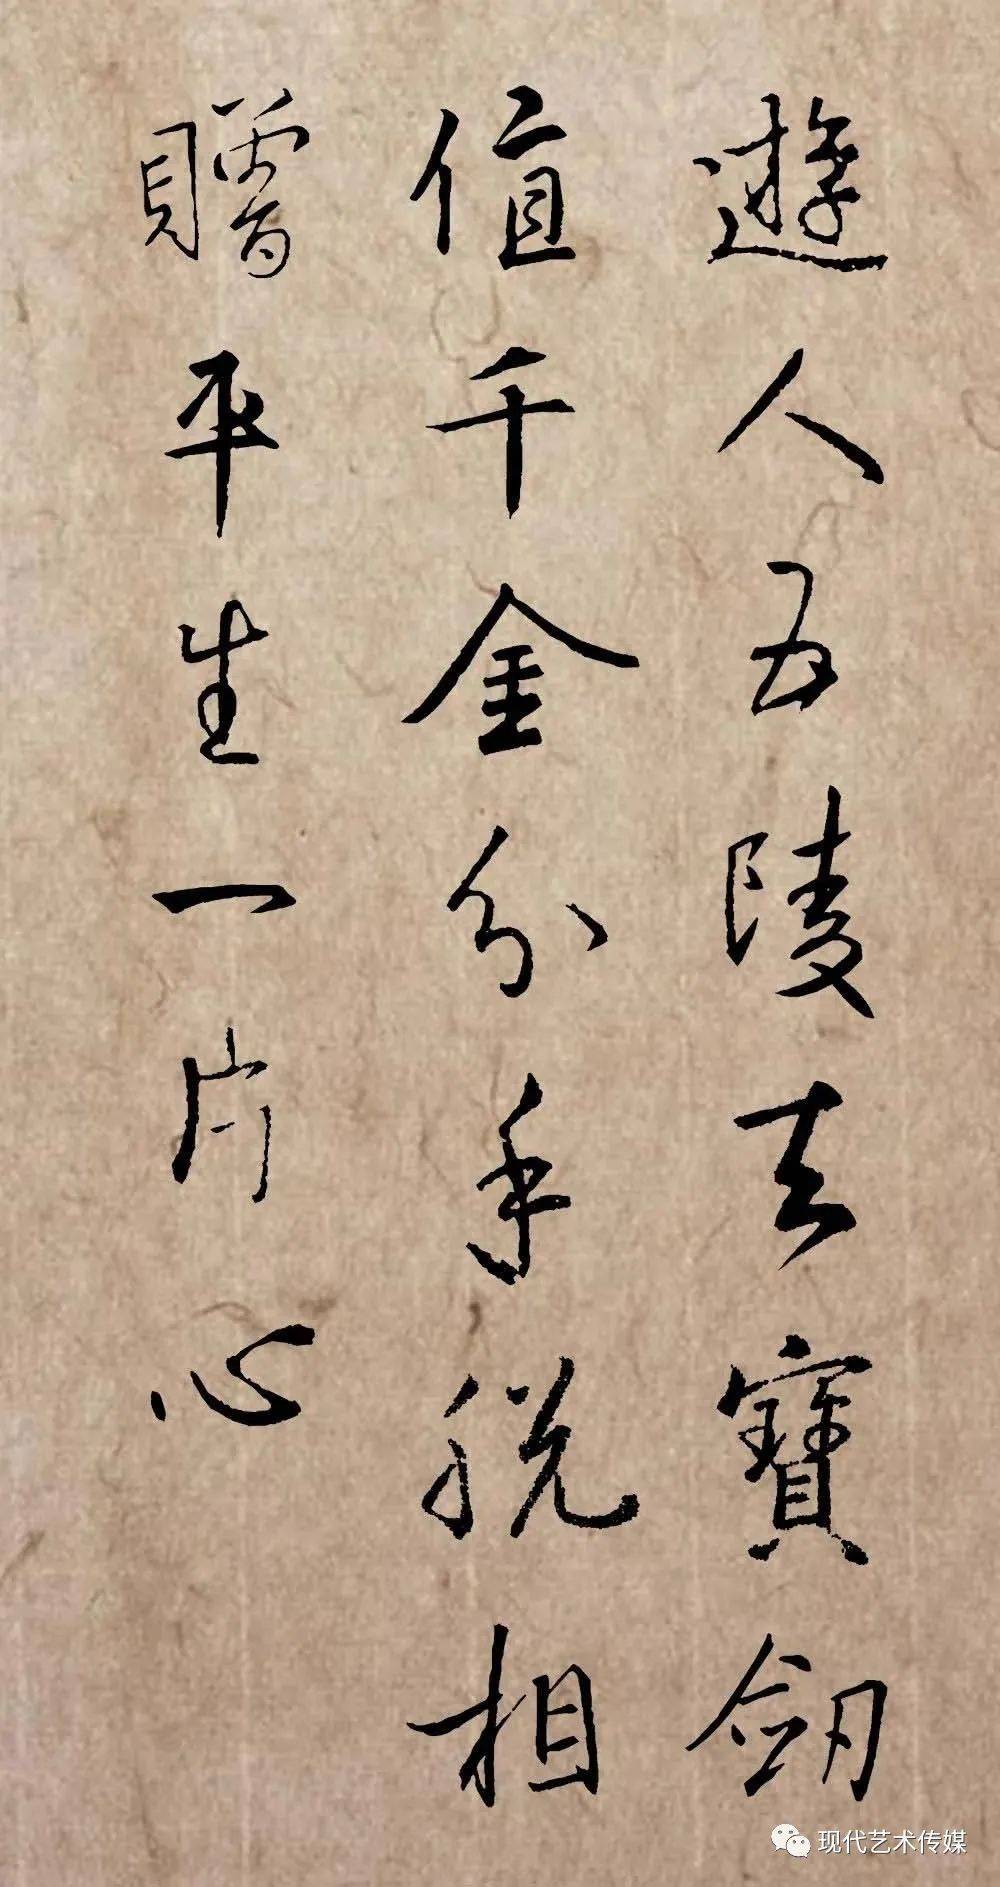 遊人五陵去寶劒
值千金分手脱相
贈平生一片心
现代艺术传媒